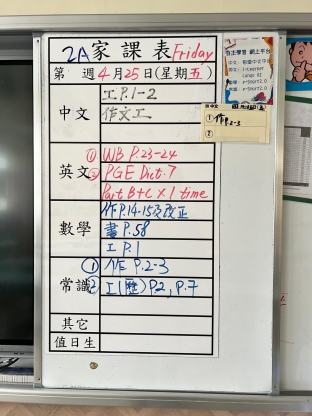 2A 家課表 Friday
第 週 4月25日(星期五)
中文
工 P.1-2
作文工
英文
① WB P.23-24
② PGE Dict. 7
Part B+C × 1 time
數學
作 P.14-15及改正
書 P.58
工 P.1
常識
① 作 P.2-3
② 工(歷) P.2, P.7
其它
值日生
自主學習 網上平台
①
P.2-3
②